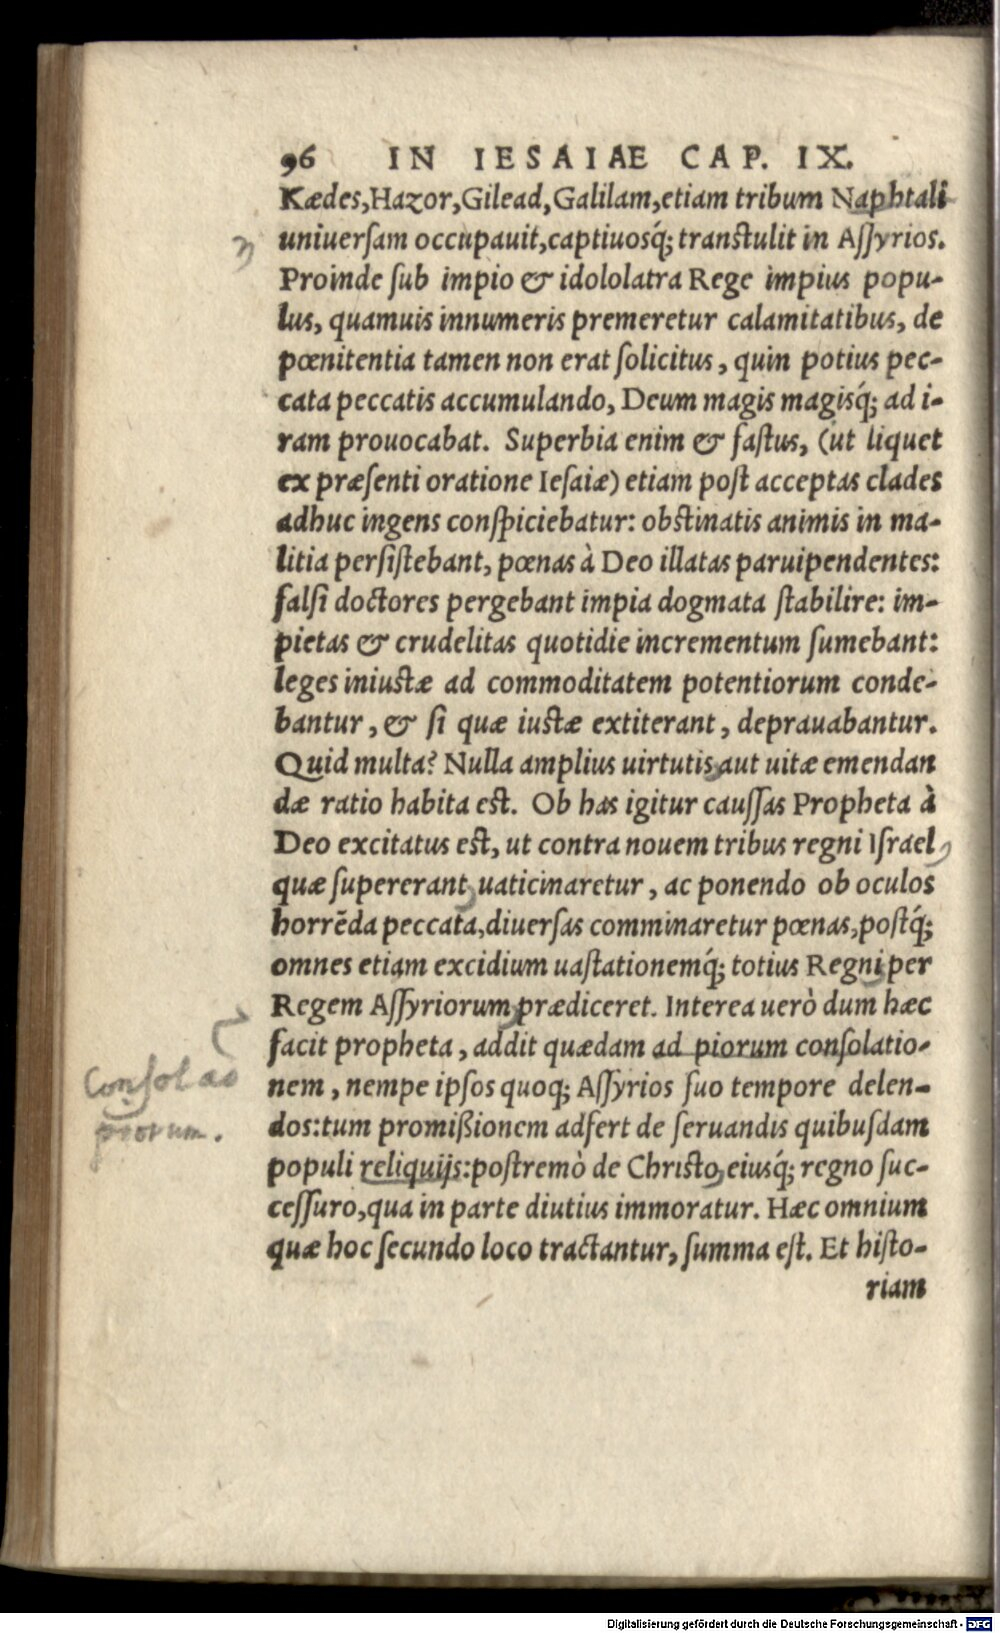 96 IN IESAIAE CAP. IX.
Kædes, Hazor, Gilead, Galilam, etiam tribum Naphtali
uniuerſam occupauit, captiuosq́; transtulit in Aſſyrios.
Proinde ſub impio & idololatra Rege impius popu-
lus, quamuis innumeris premeretur calamitatibus, de
pœnitentia tamen non erat ſolicitus, quin potius pec-
cata peccatis accumulando, Deum magis magisq́; ad i-
ram prouocabat. Superbia enim & faſtus, (ut liquet
ex præſenti oratione Ieſaiæ) etiam poſt acceptas clades
adhuc ingens conſpiciebatur: obstinatis animis in ma-
litia perſiſtebant, pœnas à Deo illatas paruipendentes:
falſi doctores pergebant impia dogmata ſtabilire: im-
pietas & crudelitas quotidie incrementum ſumebant:
leges iniustæ ad commoditatem potentiorum conde-
bantur, & ſi quæ iustæ extiterant, deprauabantur.
Quid multa? Nulla amplius uirtutis, aut uitæ emendan
dæ ratio habita est. Ob has igitur cauſſas Propheta à
Deo excitatus est, ut contra nouem tribus regni Iſrael,
quæ ſupererant, uaticinaretur, ac ponendo ob oculos
horrẽda peccata, diuerſas comminaretur pœnas, postq́;
omnes etiam excidium uaſtationemq́; totius Regni per
Regem Aſſyriorum, prædiceret. Interea uerò dum hæc
facit propheta, addit quædam ad piorum conſolatio-
Conſolao
nem, nempe ipſos quoq; Aſſyrios ſuo tempore delen-
piorum.
dos: tum promißionem adfert de ſeruandis quibuſdam
populi reliquijs: poſtremò de Christo, eiusq́; regno ſuc-
ceſſuro, qua in parte diutius immoratur. Hæc omnium
quæ hoc ſecundo loco tractantur, ſumma eſt. Et hiſto-
riam
Digitalisierung gefördert durch die Deutsche Forschungsgemeinschaft - DFG